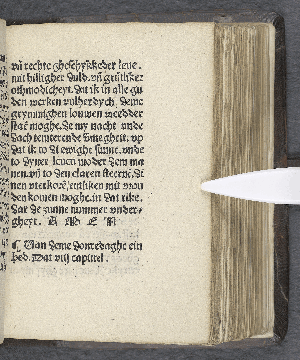 vñ rechte gheschyckeder leue.
mit hilligher duld. vñ grůtliker
othmodicheyt. dat ik in alle gu
den werken volherdych. deme
grymmighen louwen wedder
staē moghe. de my nacht vnde
dach temterende vmegheit. vp
dat ik to d ewighe sunne. vnde
to dyner leuen moder dem ma
nen. vñ to den claren sterne. dē
nen vterkorē. entliken mit vrou
den komen moghe. in dat rike.
dar de sunne nummer vnder-
gheyt. A M E N
¶ Van deme donredaghe ein
bed. Dat viij capittel.